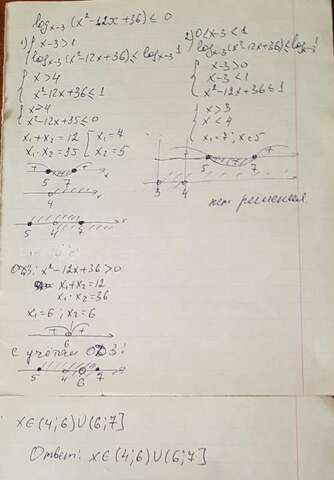 log_{x-3} (x²-12x+36) ≤ 0
1) { x-3>1
log_{x-3}(x²-12x+36) ≤ log_{x-3} 1
{ x>4
x²-12x+36 ≤ 1
{ x>4
x²-12x+35 ≤ 0
x₁+x₂=12 [ x₁=4
x₁·x₂=35 [ x₂=5
+ - +
5 7 x
4 x
5 4 7 x
ОДЗ: x²-12x+36>0
x₁+x₂=12
x₁·x₂=36
x₁=6; x₂=6
+ +
6
с учётом ОДЗ:
5 4 6 7
2) { 0<x-3<1
log_{x-3}(x²-12x+36) ≤ log_{x-3} 1
{ x-3>0
x-3<1
x²-12x+36 ≤ 1
{ x>3
x<4
x₁=7; x₂=5
+ - +
5 7
3 4
нет решений
x∈(4;6)∪(6;7]
Ответ: x∈(4;6)∪(6;7]